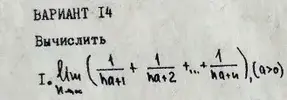 ВАРИАНТ I4
Вычислить
I. lim n→∞ (1/(na+1) + 1/(na+2) + ... + 1/(na+n)), (a>0)